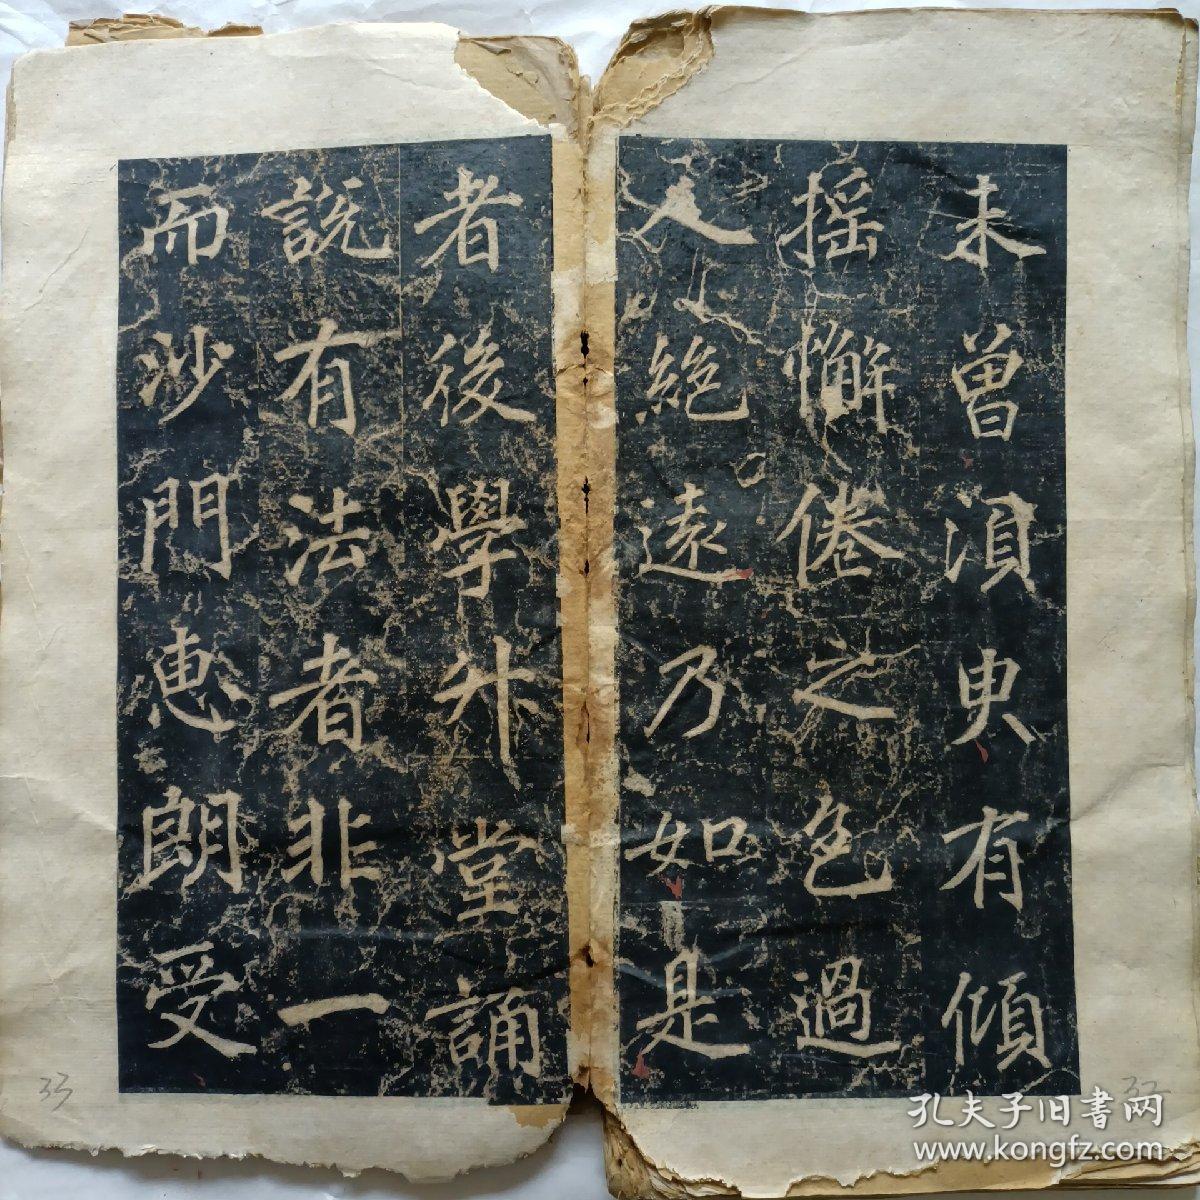 未曾須臾有傾
揺懈倦之色過
人絶遠乃如是
者後學升堂誦
說有法者非一
而沙門惠朗受
33
孔夫子旧書网
www.kongfz.com